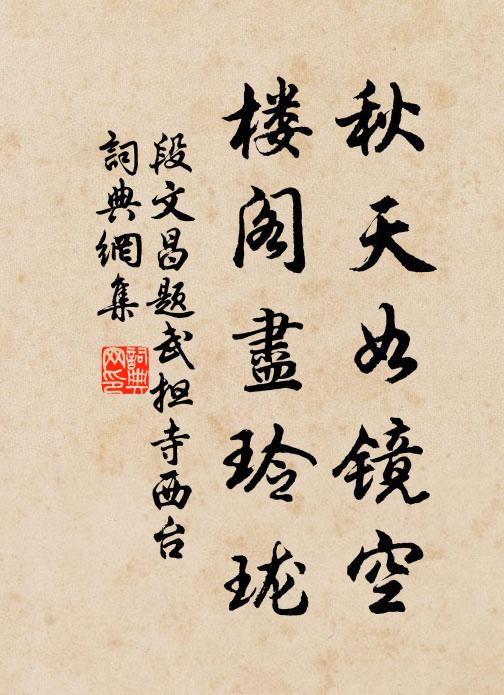 秋天如镜空
楼阁盡玲珑
段文昌题武担寺西台
詞典網集
詞典网印